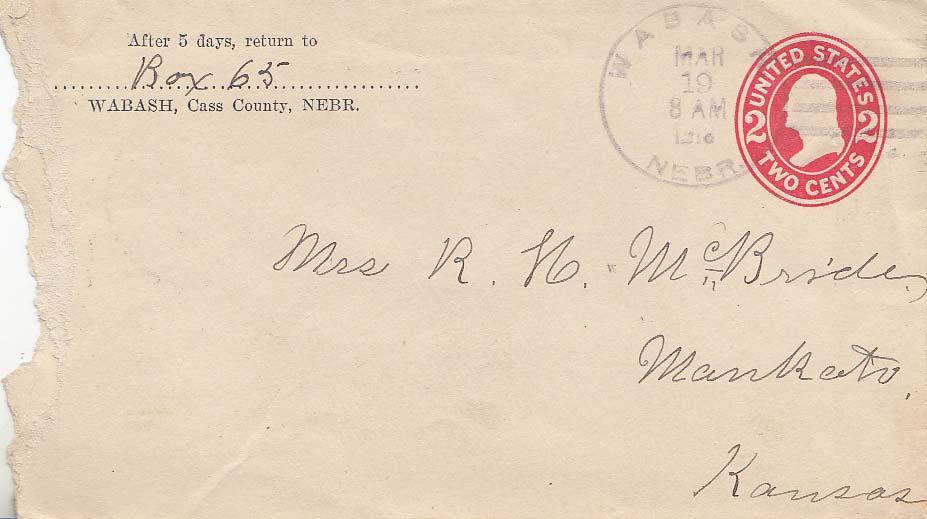 After 5 days, return to
Box 65
WABASH, Cass County, NEBR.
WABASH
MAR
19
8 AM
NEBR.
UNITED STATES
2 2
TWO CENTS
Mrs R. H. McBride,
Mankato,
Kansas